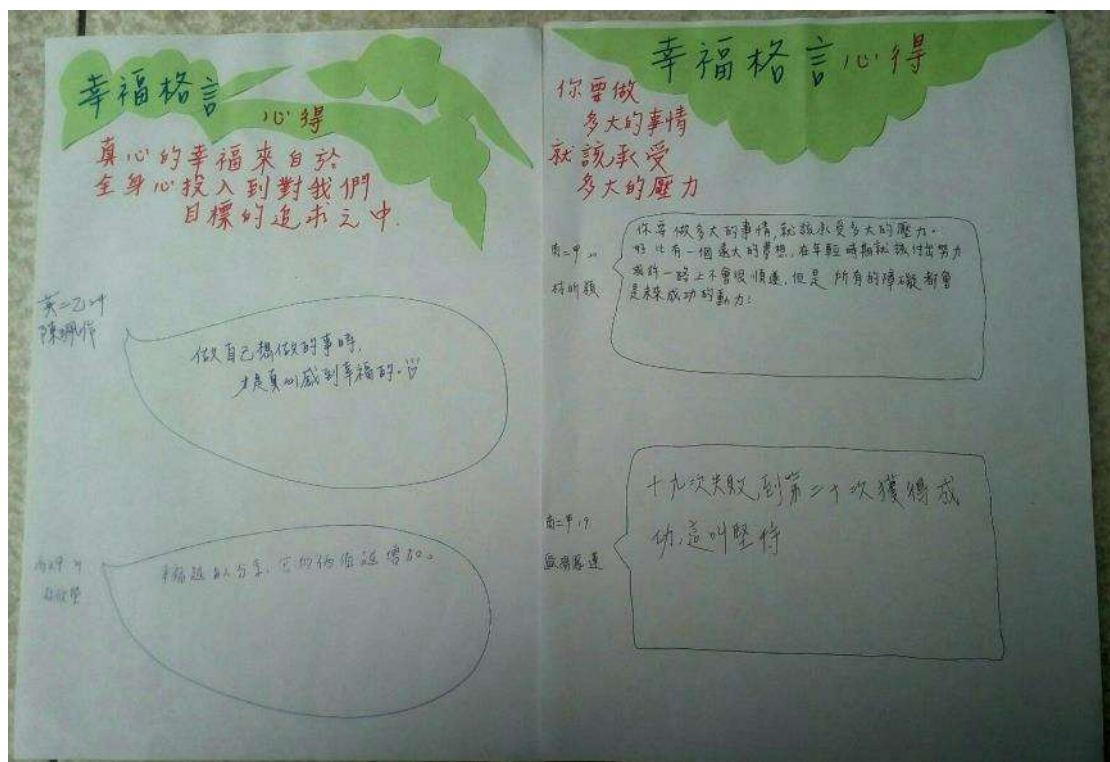 幸福格言
心得
真心的幸福來自於
全身心投入到對我們
目標的追求之中.
英二乙24
做自己想做的事時,
才是真心感到幸福的。
幸福越與人分享,它的價值越增加。
幸福格言心得
你要做
多大的事情
就該承受
多大的壓力
商二甲20
林昕穎
你要做多大的事情,就該承受多大的壓力。
好比有一個遠大的夢想,在年輕時期就該付出努力
或許一路上不會很順遂,但是所有的障礙都會
是未來成功的動力!
商二甲19
十九次失敗,到第二十次獲得成
功,這叫堅持